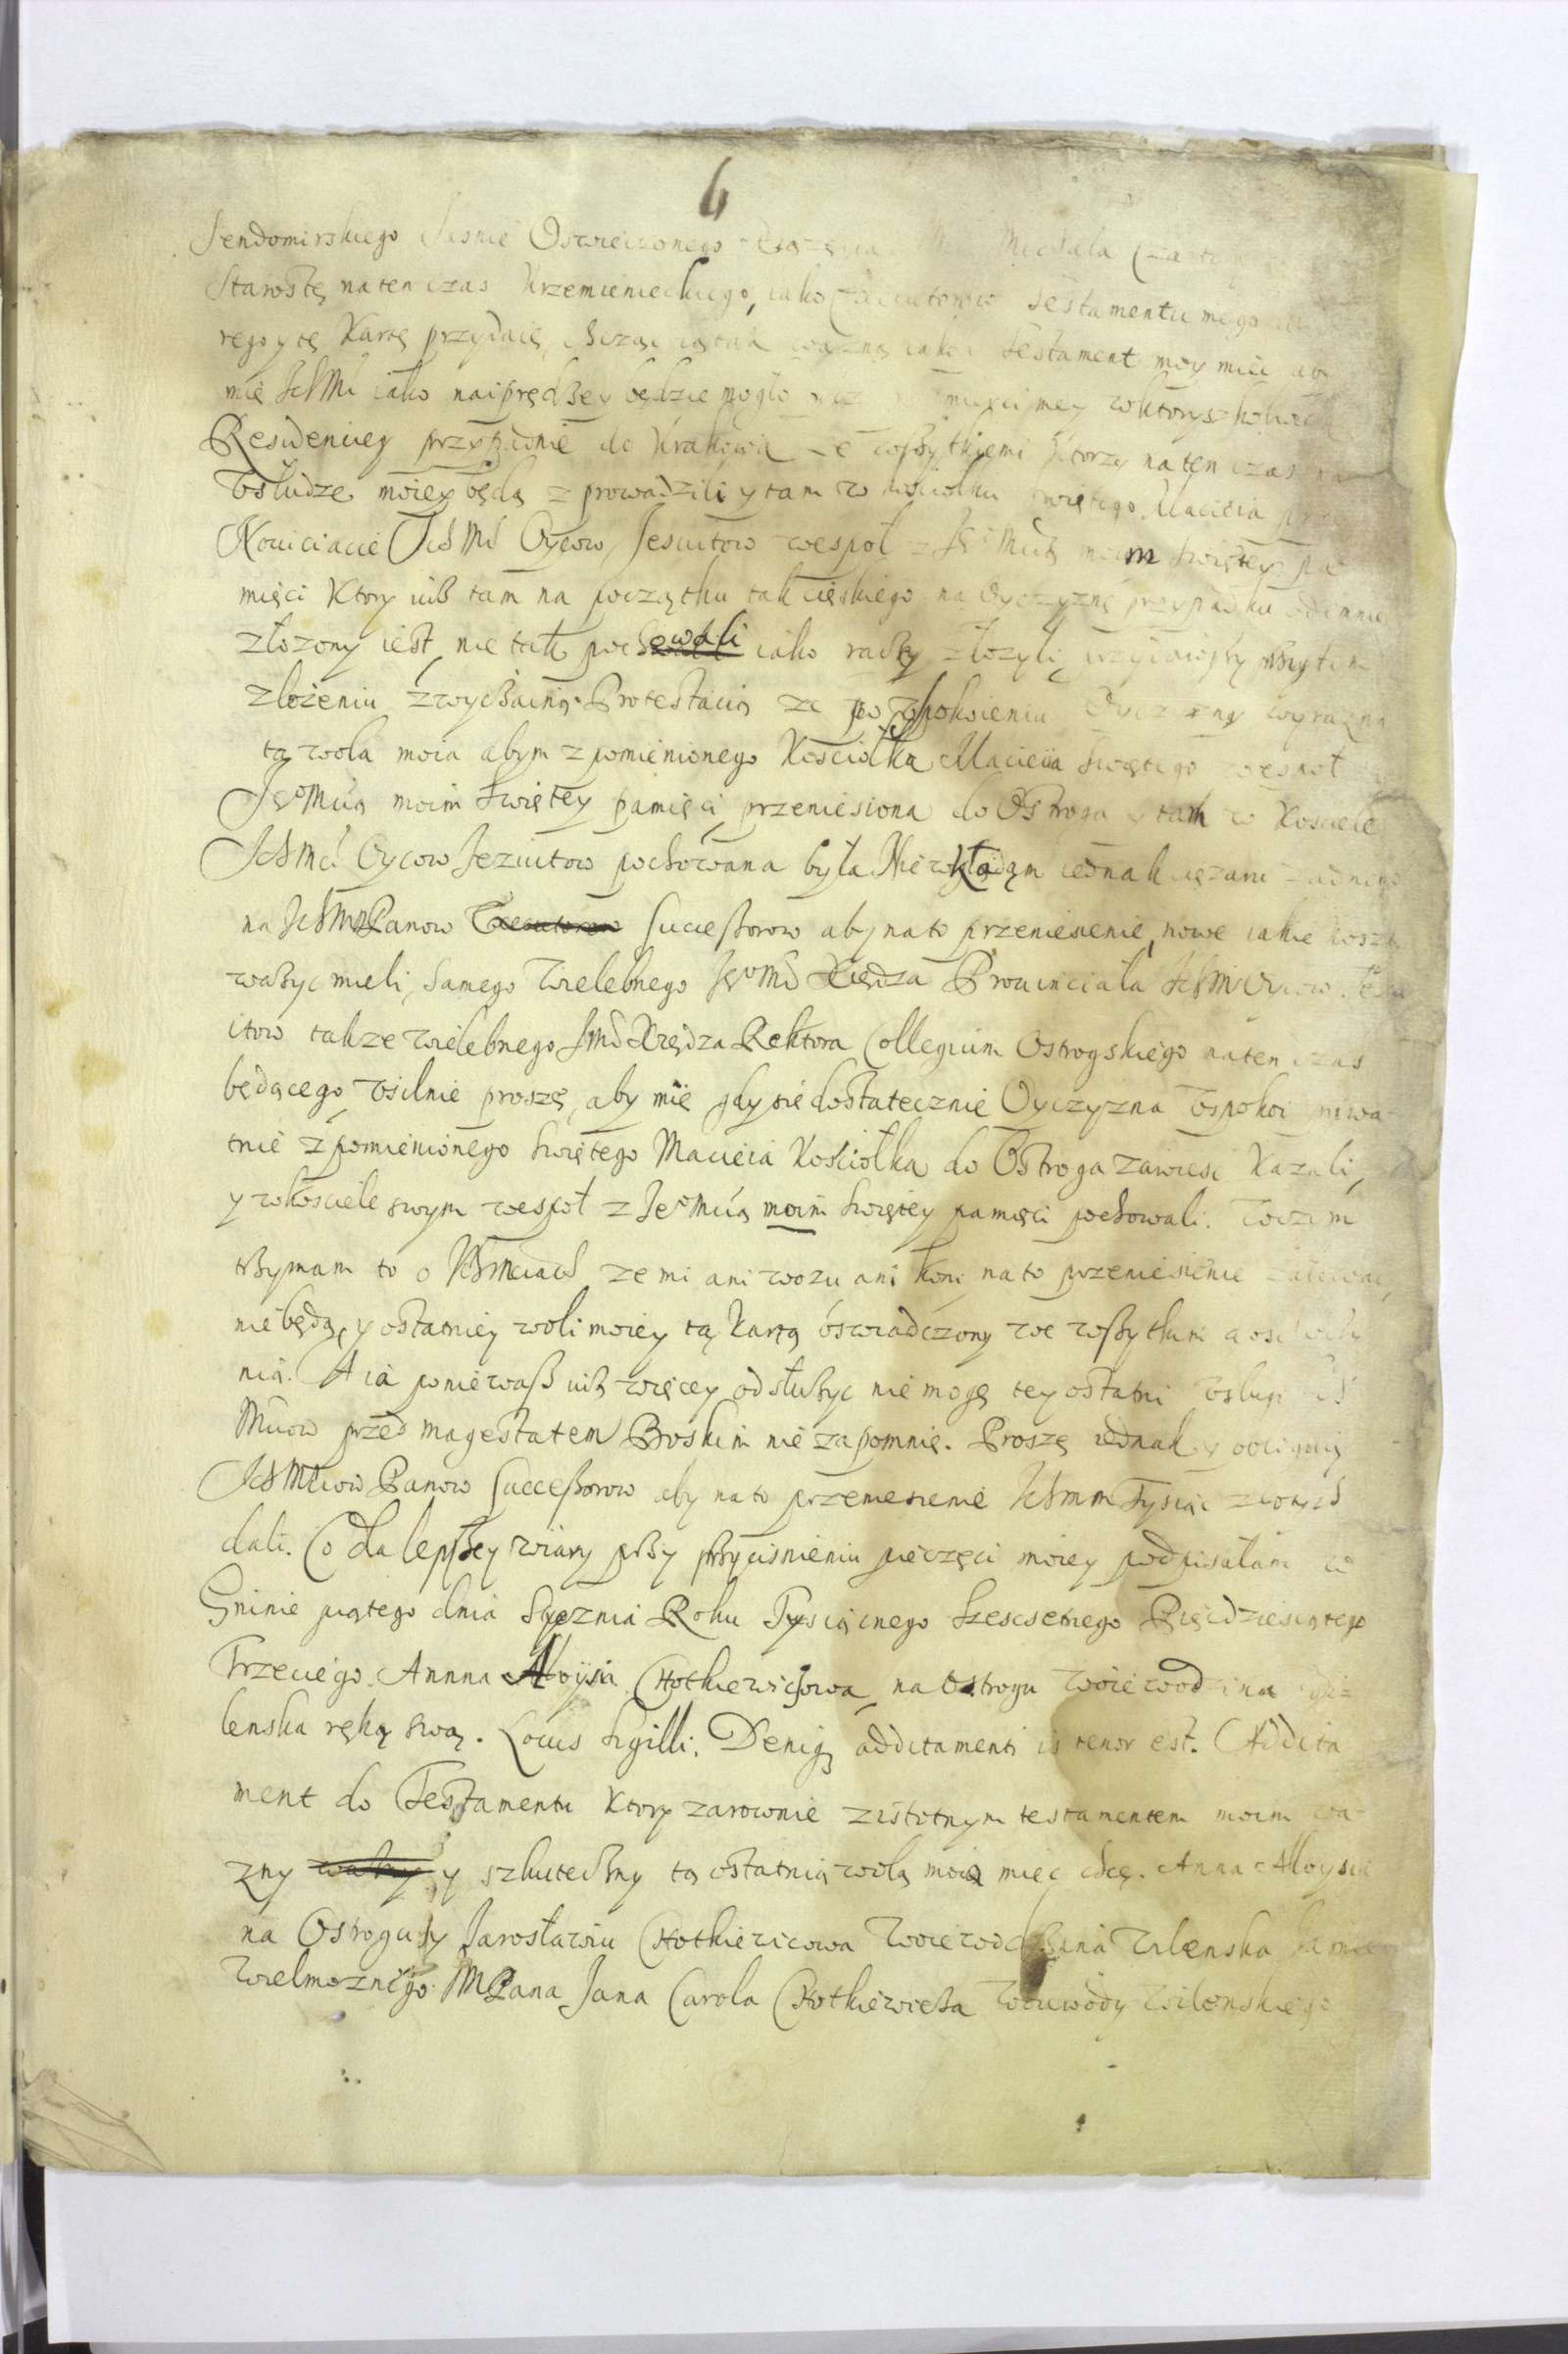 6
Sendomirskiego Jasnie Oswieconego Michała
Starostę na ten czas Krzemienieckiego, iako Executorow Testamentu mego
rego y tę Kartę przydaię, chcząc ią tak wazną iako Testament moy miec aby
mię IchMci iako naiprędzey będzie mogło smierci mey wktoryszkolwiek
Residenciey przypadnie do Krakowa ze wszytkiemi ktorzy na ten czas na
usłudze moiey będą zprowadzili y tam w kosciołku swiętego Macieia przy
Nouiciacie IchMć Oycow Jesuitow wespoł z JęoMcią moim swiętey pa
mięci Ktory iuß tam na początku tak cięskiego na Oyczyznę przypadku odemnie
złozony iest, nie tak pochowali iako raczy złozyli, uzyiwszy przy tem
złożeniu zwyczainą Protestacią ze po uspokoieniu Oyczyzny wyrazna
ta wola moia abym z pomienionego Kosciołka Macieia swiętego wespoł
JęoMcią moim swiętey pamięci przeniesiona do Ostroga y tam w Kosciele
IchMć Oycow Jezuitow pochowana była. Niewkładąm iednak cięzaru zadnego
na IchMPanow Executorow Successorow aby na to przeniesienie, nowe iakie koszta
wazyc mieli, samego Wielebnego JęoMć Xiędza Prouinciała IchMć Oycow Jesu
itow takze wielebnego JMć Xiędza Rektora Collegium Ostrogskiego naten czas
będącego usilnie proszę, aby mię gdy się dostatecznie Oyczyzna uspokoi priwa-
tnie z pomienionego swiętego Macieia Kosciołka do Ostroga zawiesc Kazali,
y wkosciele swym wespoł z JeoMcią moim swiętey pamięci pochowali.
trzymam to o IchMciach ze mi ani wozu ani koni na to przeniesienie załowac
niebędą, y ostatniey woli moiey tą Kartą óswiadczony we wszytkim
nią. A ia poniewaß iuß więcey odsłuzyc nie mogę tey ostatni usługi Ich
Mciow przed magestatem Boskim nie zapomnię. Proszę iednak y obliguię
IchMciow Panow Successorow aby na to przeniesienie IchMM Tysiąc złotych
dali. Co dla lepszey wiary przy przycisnieniu pieczęci moiey podpisałam w
Gninie piątego dnia Stycznia Roku Tysiącnego Szescsetnego Pięcdziesiątego
Trzeciego. Annna Aloysia Chotkiewiczowa na Ostrogu woiewodzina Wi=
lenska ręką swą. Locus Sigilli. Deniq additamenti is tenor est. Addita
ment do Testamentu Ktory zarownie zistotnym testamentem moim wa-
zny wazny y szkuteczny tą ostatnią wolą moią miec chcę. Anna Aloysia
na Ostrogu y Jarosławiu Chotkiewicowa Woiewodzina Wilenska
Wielmoznego MPana Jana Carola Chotkiewicza Woiewody Wilenskiego